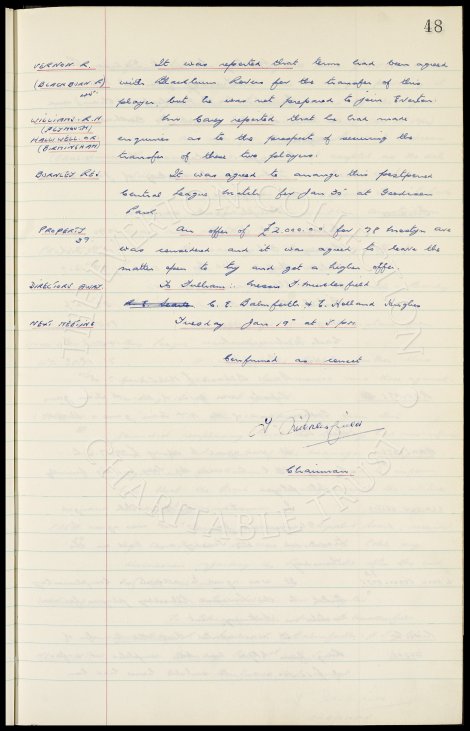 48
VERNON. R. It was reported that terms had been agreed
(BLACKBURN. R) with Blackburn Rovers for the transfer of this
player, but he was not prepared to join Everton.
WILLIAMS. R.H. Mr Carey reported that he had made
(PLYMOUTH)
HALLIWELL. enquiries as to the prospects of securing the
(BIRMINGHAM) transfer of these two players.
BURNLEY RES. It was agreed to arrange this postponed
Central League match for Jan 30 at Goodison
Park.
PROPERTY. An offer of £2,000.00 for 78 Mostyn Ave
37 was considered and it was agreed to leave the
matter open to try and get a higher offer.
DIRECTORS AWAY. To Fulham:. Messrs F. Micklesfield
C. E. Balmforth & E. Holland Hughes
NEXT MEETING Tuesday Jan 19th at 5 P.M.
Confirmed as correct
F Micklesfield
Chairman
THE EVERTON COLLECTION
CHARITABLE TRUST